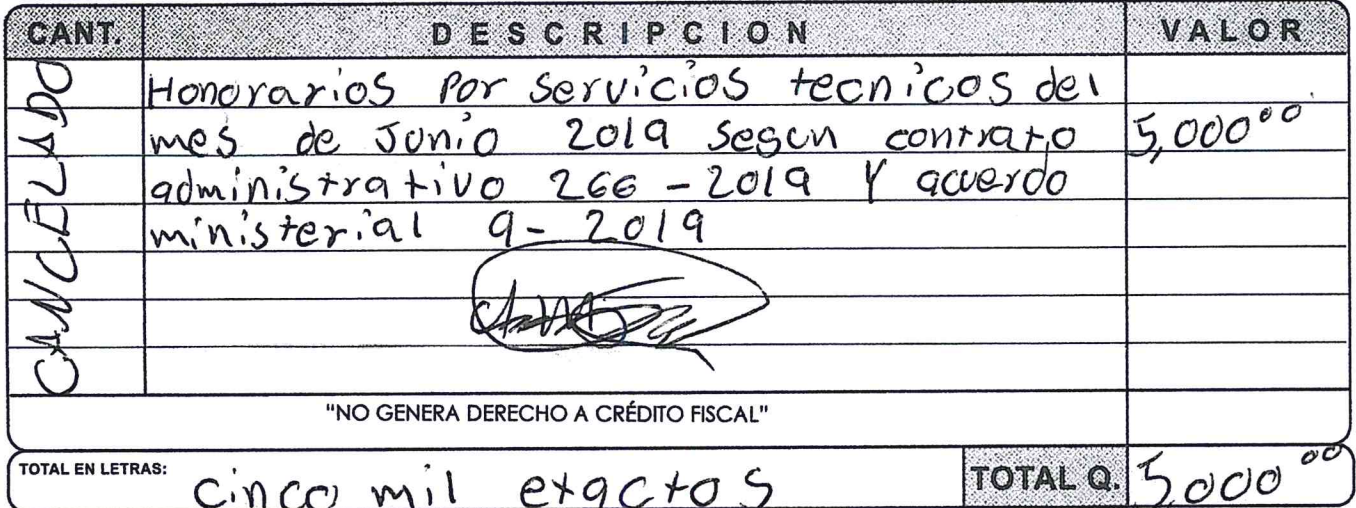 CANT. DESCRIPCION VALOR
CANCELADO
Honorarios Por servicios tecnicos del
mes de Junio 2019 segun contrato 5,000⁰⁰
administrativo 266-2019 Y acuerdo
ministerial 9-2019
"NO GENERA DERECHO A CRÉDITO FISCAL"
TOTAL EN LETRAS: cinco mil exactos TOTAL Q. 5000⁰⁰